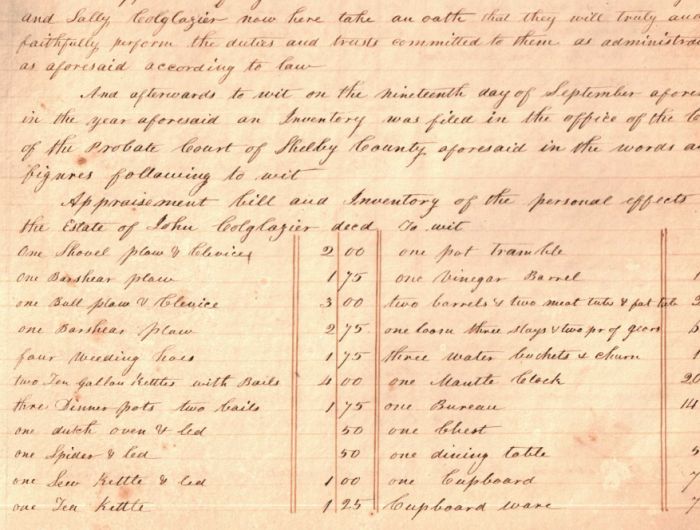 and Sally Colglazier now here take an oath that they will truly and
faithfully perform the duties and trusts committed to them as administra
as aforesaid according to law
And afterwards to wit on the nineteenth day of September afores
in the year aforesaid an Inventory was filed in the office of the C
of the Probate Court of Shelby County aforesaid in the words a
figures following to wit
Appraisement bill and Inventory of the personal effects
the Estate of John Colglazier decd To wit
One Shovel plow & Clevices 2 00
one Barshear plow 1 75
one Bull plow & Clevice 3 00
one Barshear plow 2 75
four Weeding hoes 1 75
two Ten Gallon Kettles with Bails 4 00
three Dinner pots two bails 1 75
one dutch oven & led 50
one Spider & led 50
one Sew Kettle & led 1 00
one Tea Kettle 1 25
one pot tramble
one Vinegar Barrel 1
two barrels & two meat tubs & fat tub
one loom three slays & two pr of gears
three water buckets & churn 1
one Mantle Clock 20
one Bureau 14
one Chest
one dining table 5
one Cupboard 7
Cupboard ware 7